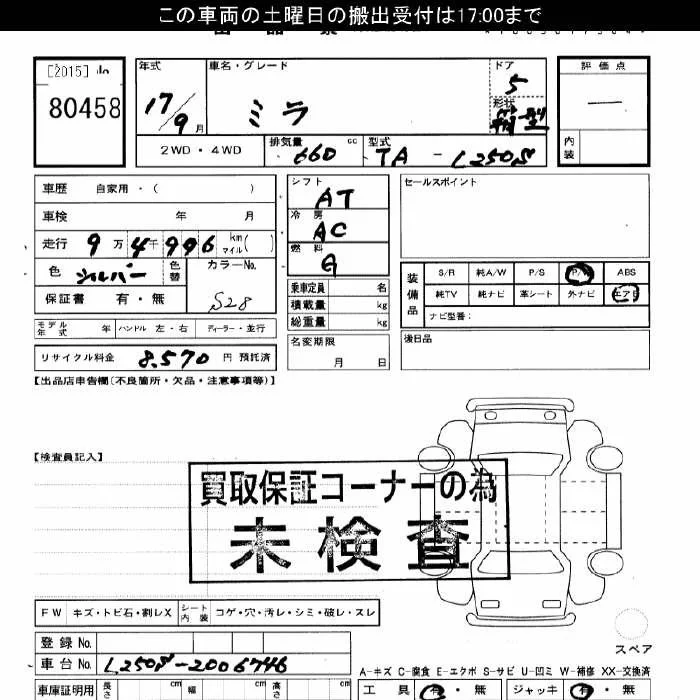 この車両の土曜日の搬出受付は17:00まで
[2015]
80458
年式
車名・グレード
ドア
評価点
17/9月
ミラ
5
形状
箱型
2WD・4WD
排気量
660
cc
型式
TA - L250S
内装
車歴 自家用・( )
車検 年 月
走行 9万4千996 km マイル( )
色 シルバー
色替
カラーNo.
S28
保証書 有・無
シフト
AT
冷房
AC
燃料
G
乗車定員 名
積載量 kg
総重量 kg
セールスポイント
装備品
S/R 純A/W P/S P/W ABS
純TV 純ナビ 革シート 外ナビ エアB
ナビ型番:
モデル年式 年 ハンドル 左・右 ディーラー・並行
名変期限
月 日
後日品
リサイクル料金 8,570 円 預託済
【出品店申告欄(不良箇所・欠品・注意事項等)】
【検査員記入】
買取保証コーナーの為
未検査
FW キズ・トビ石・割レX
シート内装 コゲ・穴・汚レ・シミ・破レ・スレ
登録No.
スペア
車台No. L250S-2006746
A-キズ C-腐食 E-エクボ S-サビ U-凹ミ W-補修 XX-交換済
車庫証明用 長さ cm 幅 cm 高さ cm
工具 有・無 ジャッキ 有・無